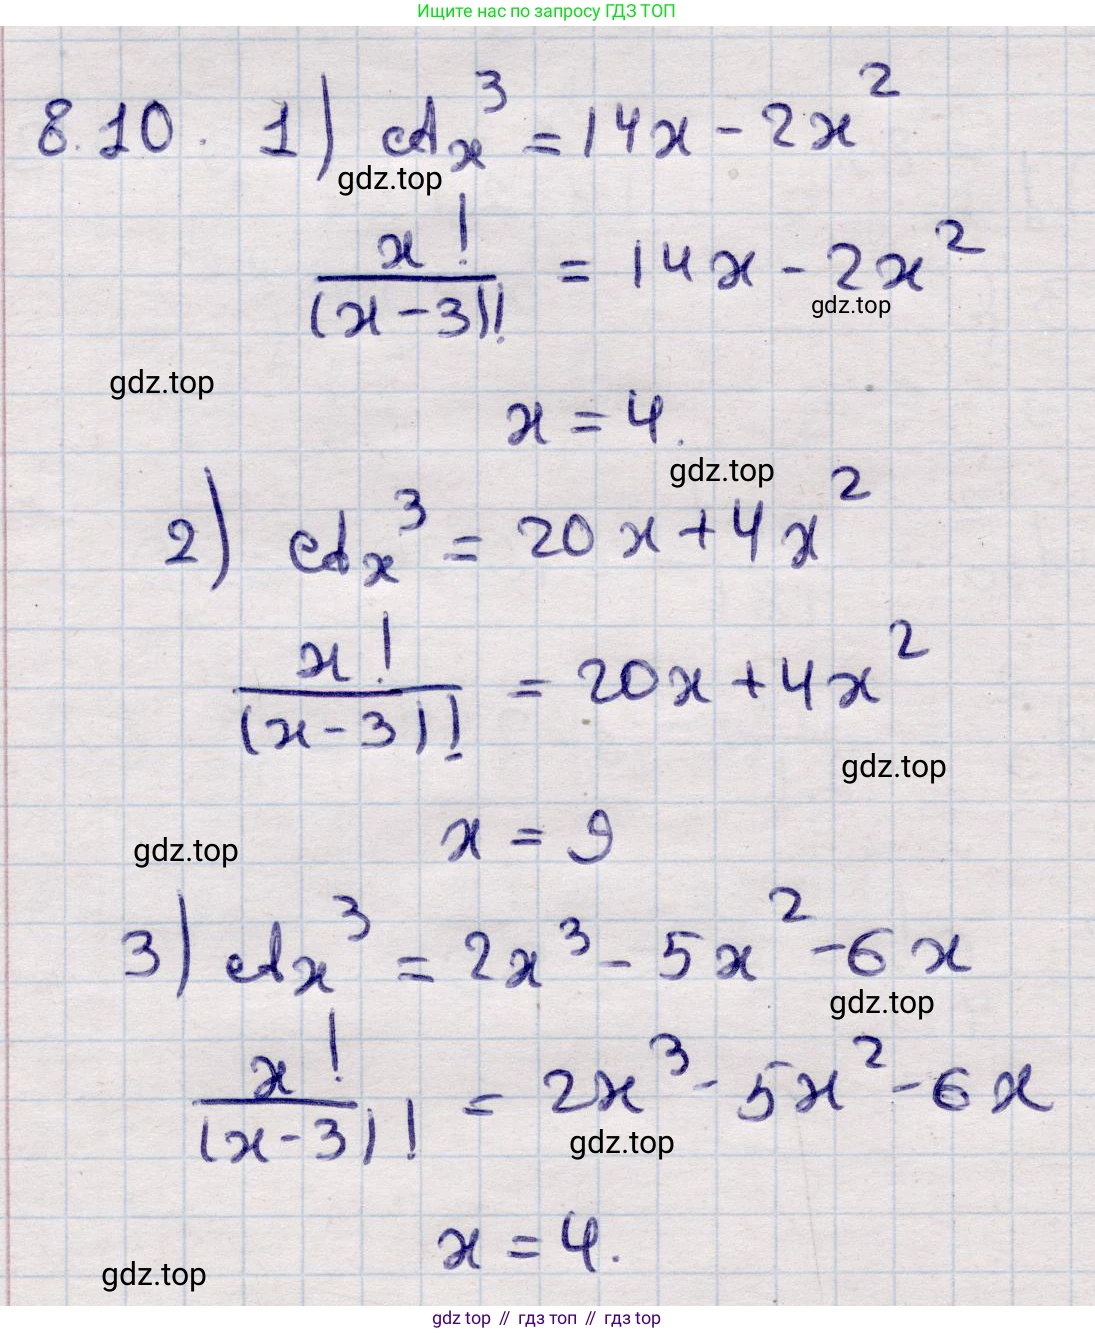 Ищите нас по запросу ГДЗ ТОП
8.10. 1) A_x^3 = 14x - 2x^2
gdz.top
x! / (x-3)! = 14x - 2x^2
gdz.top
gdz.top
x = 4.
gdz.top
2) A_x^3 = 20x + 4x^2
x! / (x-3)! = 20x + 4x^2
gdz.top
x = 9
gdz.top
3) A_x^3 = 2x^3 - 5x^2 - 6x
gdz.top
x! / (x-3)! = 2x^3 - 5x^2 - 6x
gdz.top
x = 4.
gdz.top
gdz top // гдз топ // gdz top